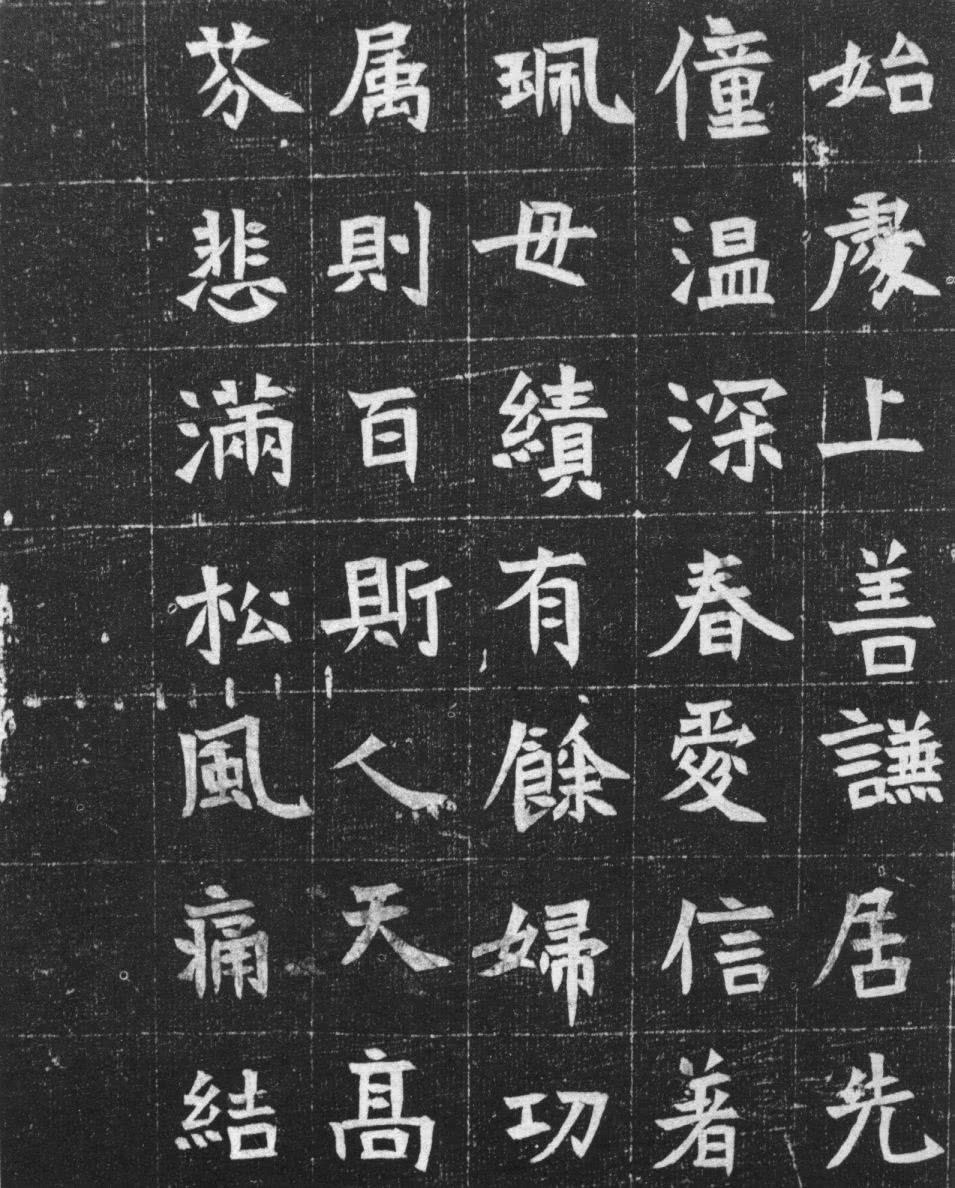 始處上善謙居先
僮温深春愛信著
珮毌績有餘婦功
属則百斯人天髙
芬悲滿松風痛結